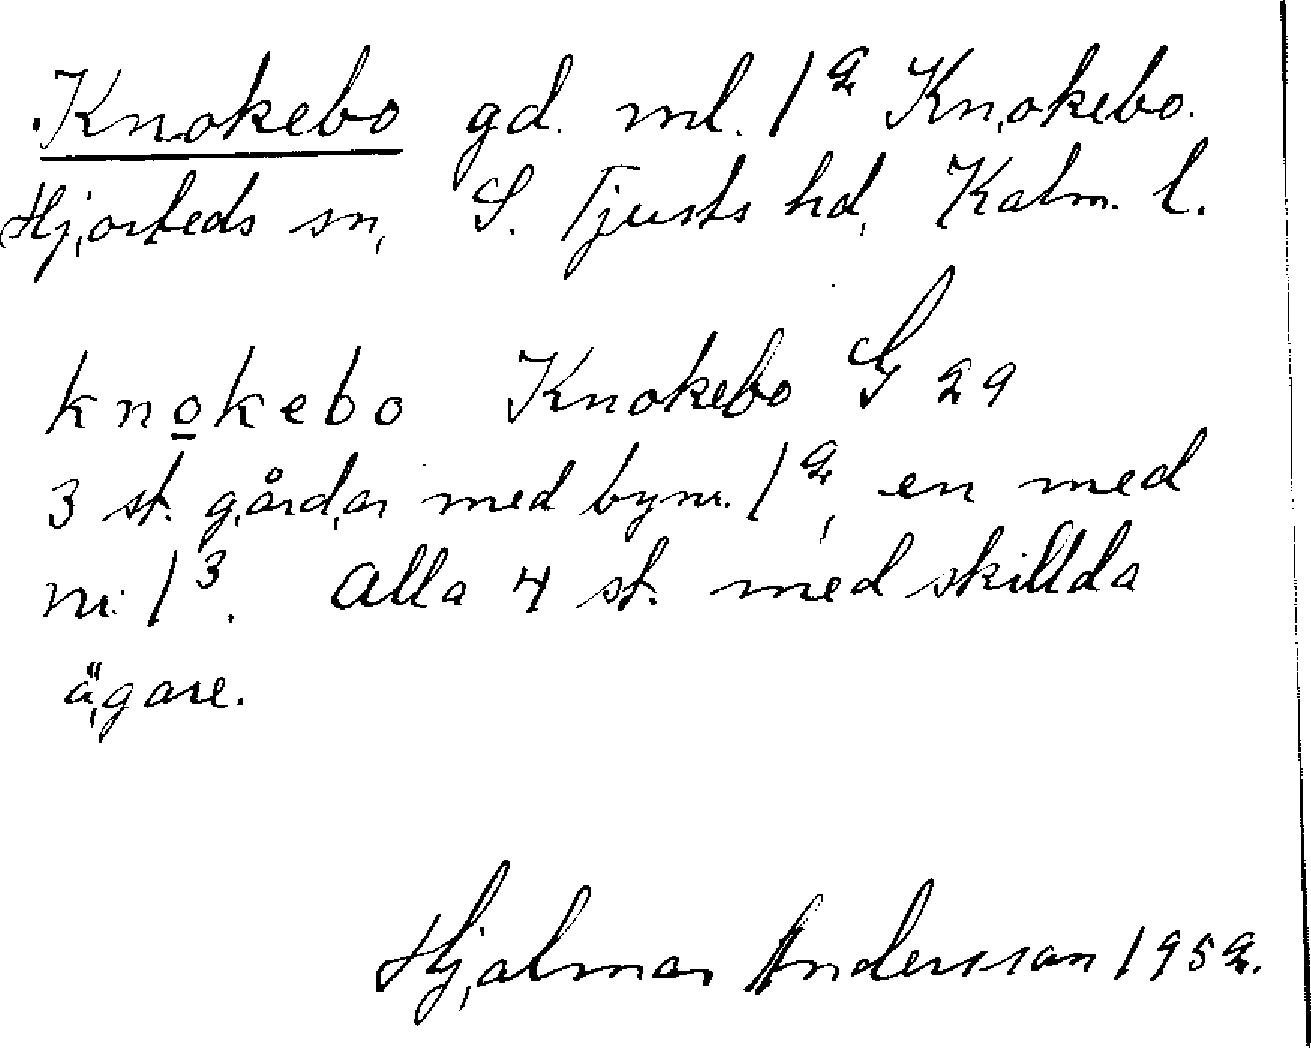 Knokebo gd. ml. 1² Knokebo.
Hjorteds sn, S. Tjusts hd, Kalm. l.
knokebo Knokebo G 29
3 st. gårdar med bynr. 1², en med
nr. 1³. Alla 4 st. med skillda
ägare.
Hjalmar Andersson 1952.